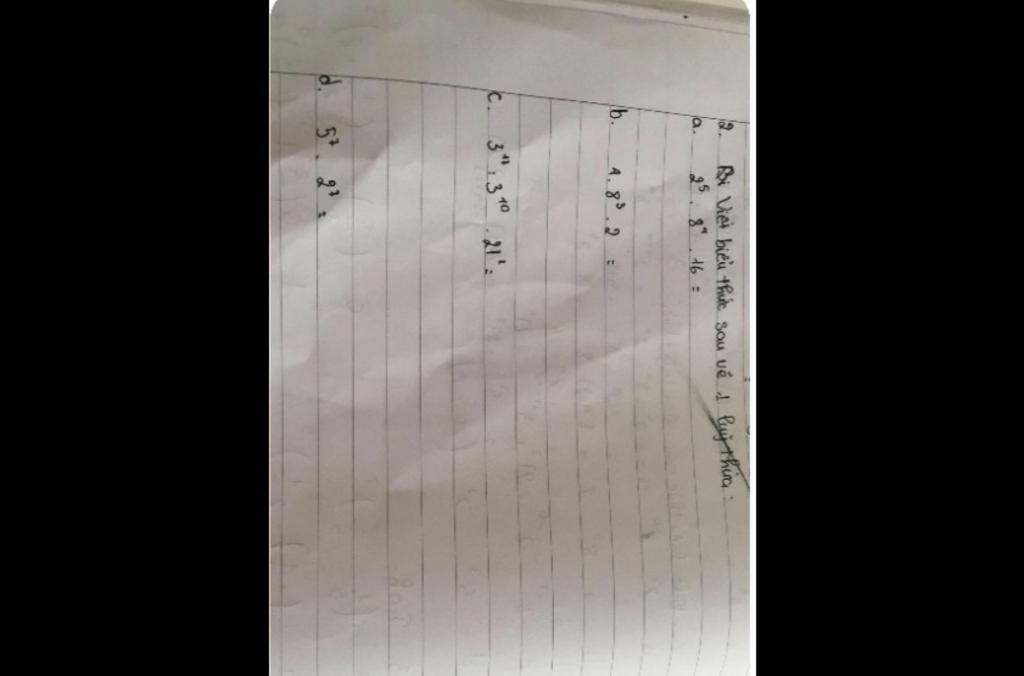 2. Viết biểu thức sau về 1 luỹ thừa:
a. 2⁵ . 8⁴ . 16 =
b. 4 . 8³ . 2 =
c. 3¹⁷ : 3¹⁰ . 21¹ =
d. 5⁷ . 2⁷ =